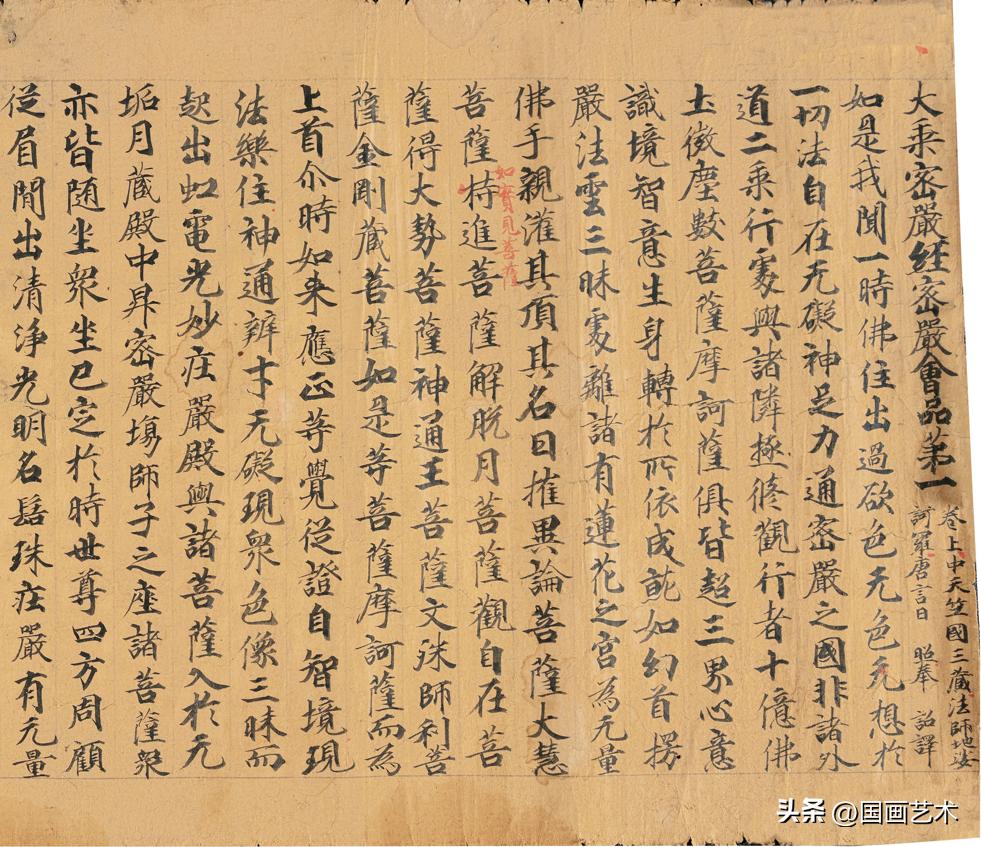 大乘密嚴經密嚴會品第一
卷上 中天竺國三藏法師地婆
訶羅唐言日照奉 詔譯
如是我聞一時佛住出過欲色无色无想於
一切法自在无礙神足力通密嚴之國非諸外
道二乘行處與諸隣極修觀行者十億佛
土微塵數菩薩摩訶薩俱皆超三界心意
識境智意生身轉於所依成就如幻首楞
嚴法雲三昧處離諸有蓮花之宮為无量
佛手親灌其頂其名曰摧異論菩薩大慧
如實見菩薩
菩薩持進菩薩解脫月菩薩觀自在菩
薩得大勢菩薩神通王菩薩文殊師利菩
薩金剛藏菩薩如是等菩薩摩訶薩而為
上首尒時如来應正等覺從證自智境現
法樂住神通辨才无礙現衆色像三昧而
起出虹電光妙莊嚴殿與諸菩薩入於无
垢月藏殿中昇密嚴塲師子之座諸菩薩衆
亦皆隨坐衆坐已定於時世尊四方周顧
從眉間出清淨光明名髻珠莊嚴有无量
头条 @国画艺术